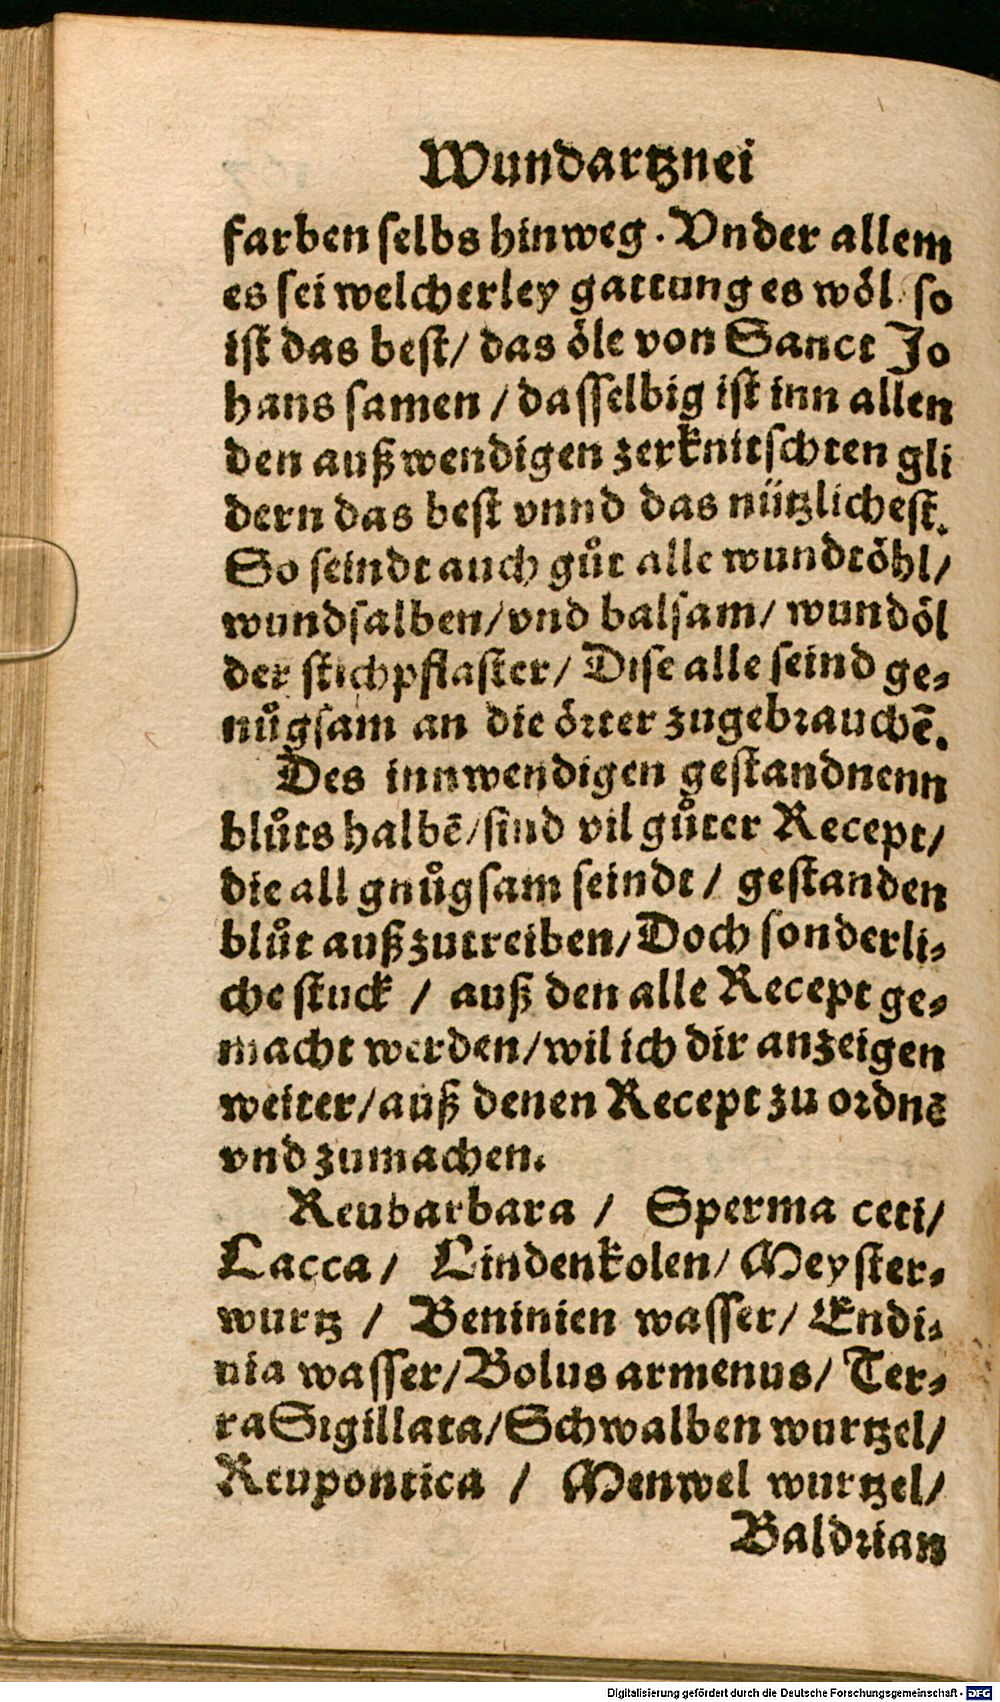 Wundartznei
farben selbs hinweg. Vnder allem
es sei welcherley gattung es wöl so
ist das best/ das öle von Sanct Jo
hans samen / dasselbig ist inn allen
den außwendigen zerknitschten gli
dern das best vnnd das nützlichest.
So seindt auch gůt alle wundtöhl/
wundsalben/vnd balsam/ wundöl
der stichpflaster/ Dise alle seind ge⸗
nůgsam an die örter zugebrauchē.
Des innwendigen gestandnenn
blůts halbē/sind vil gůter Recept/
die all gnůgsam seindt / gestanden
blůt außzutreiben/Doch sonderli⸗
che stuck / auß den alle Recept ge⸗
macht werden/wil ich dir anzeigen
weiter/auß denen Recept zu ordnē
vnd zumachen.
Reubarbara / Sperma ceti/
Lacca/ Lindenkolen/ Meyster⸗
wurtz / Beninien wasser/ Endi⸗
uia wasser/Bolus armenus/ Ter⸗
ra Sigillata/Schwalben wurtzel/
Reupontica / Menwel wurtzel/
Baldrian
Digitalisierung gefördert durch die Deutsche Forschungsgemeinschaft - DFG